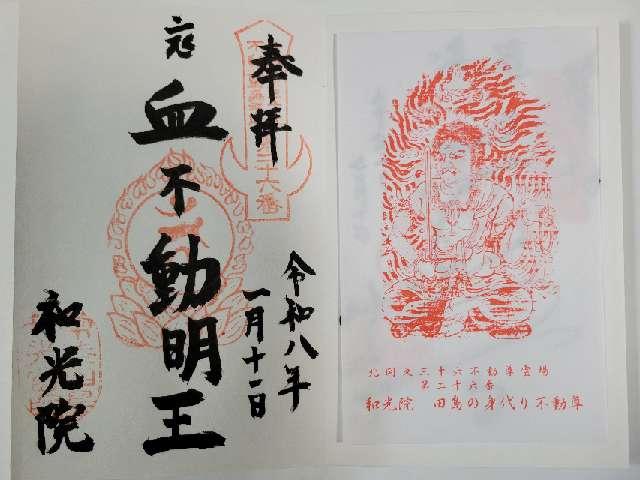 奉拝
令和八年
一月十一日
血不動明王
和光院
六番
北関東三十六不動尊霊場
第二十六番
和光院 田島の身代り不動尊